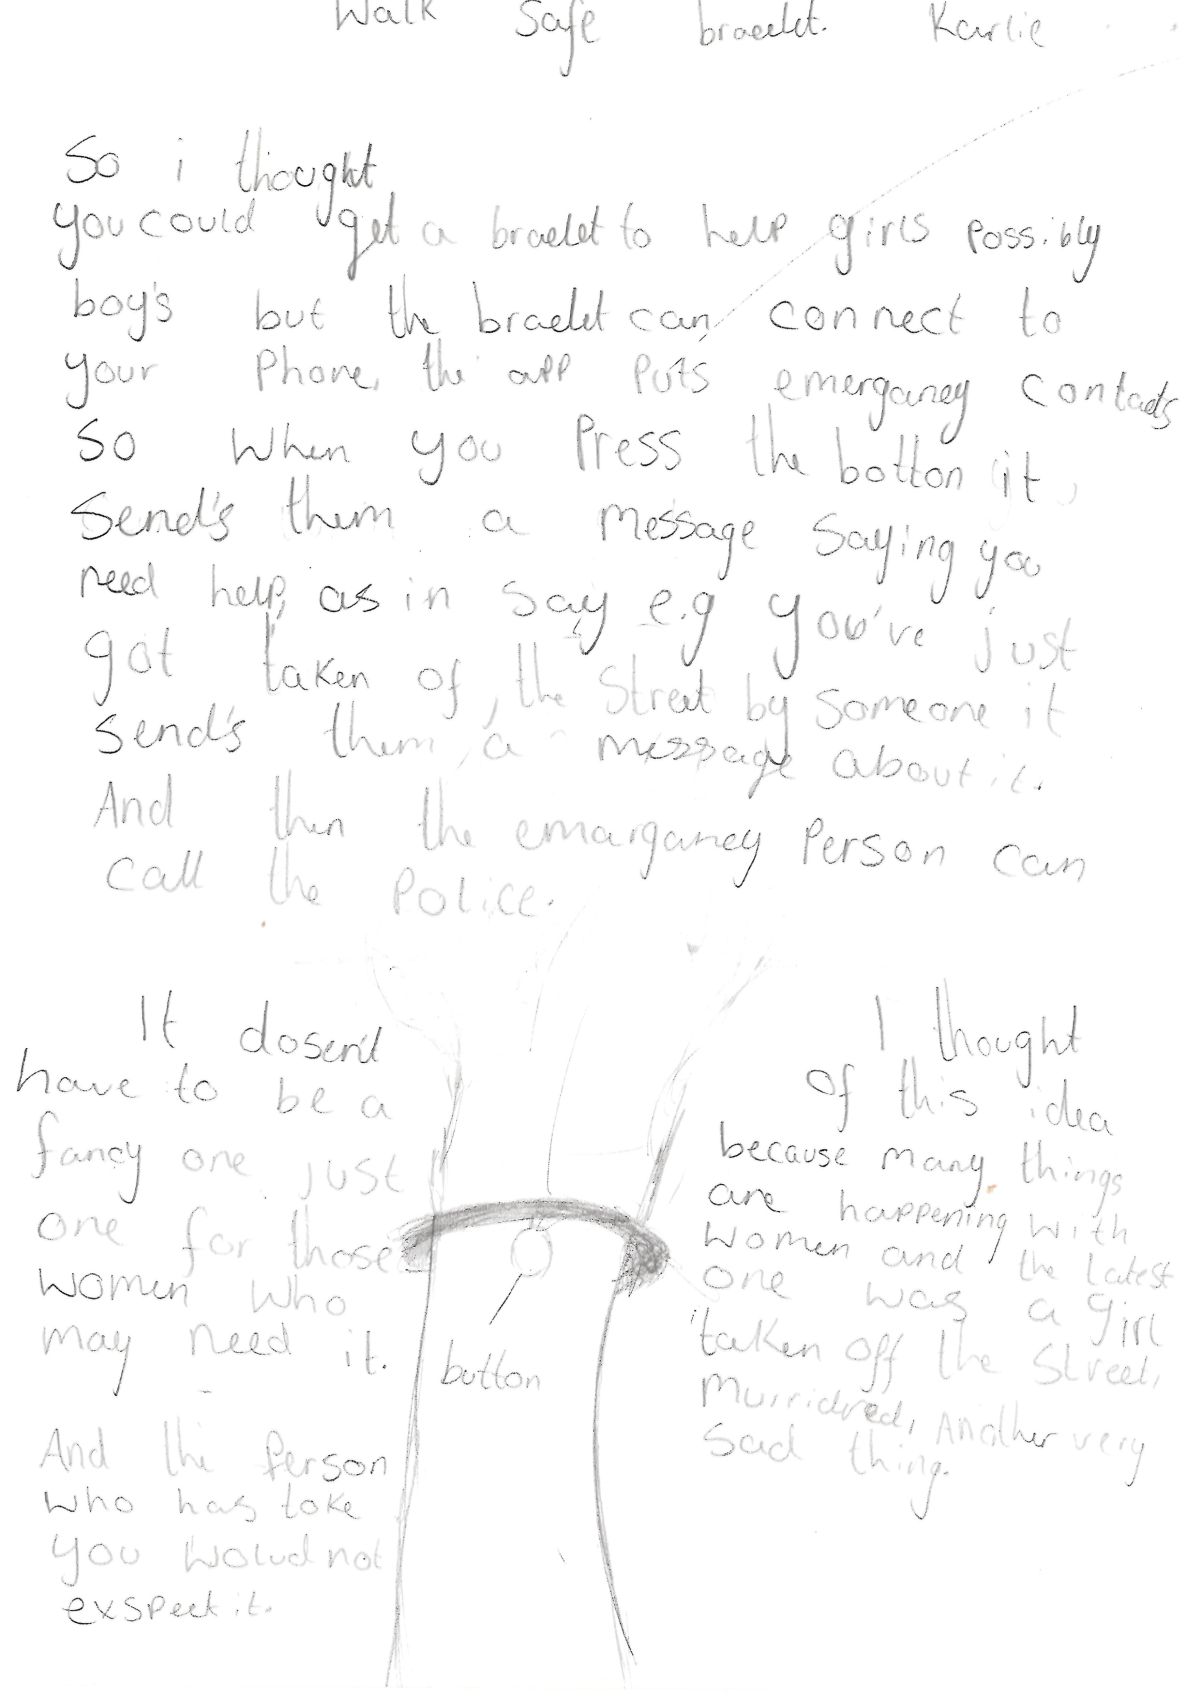 Walk Safe bracelet. Karlie
So i thought
you could get a braelet to help girls possibly
boy's but the braelet can connect to
your Phone, the app puts emerganey contacts
So when you Press the botton it
Send's them a message Saying you
need help, as in say e.g you've just
got taken of, the Street by someone it
send's them a message about it.
And then the emarganey Person can
call the Police.
It dosen't
have to be a
fancy one just
one for those
women who
may need it.
And the person
who has toke
you wolud not
exspect it.
button
I thought
of this idea
because many things
are happening with
women and the latest
one was a girl
taken off the Street,
Murridred, Another very
sad thing.